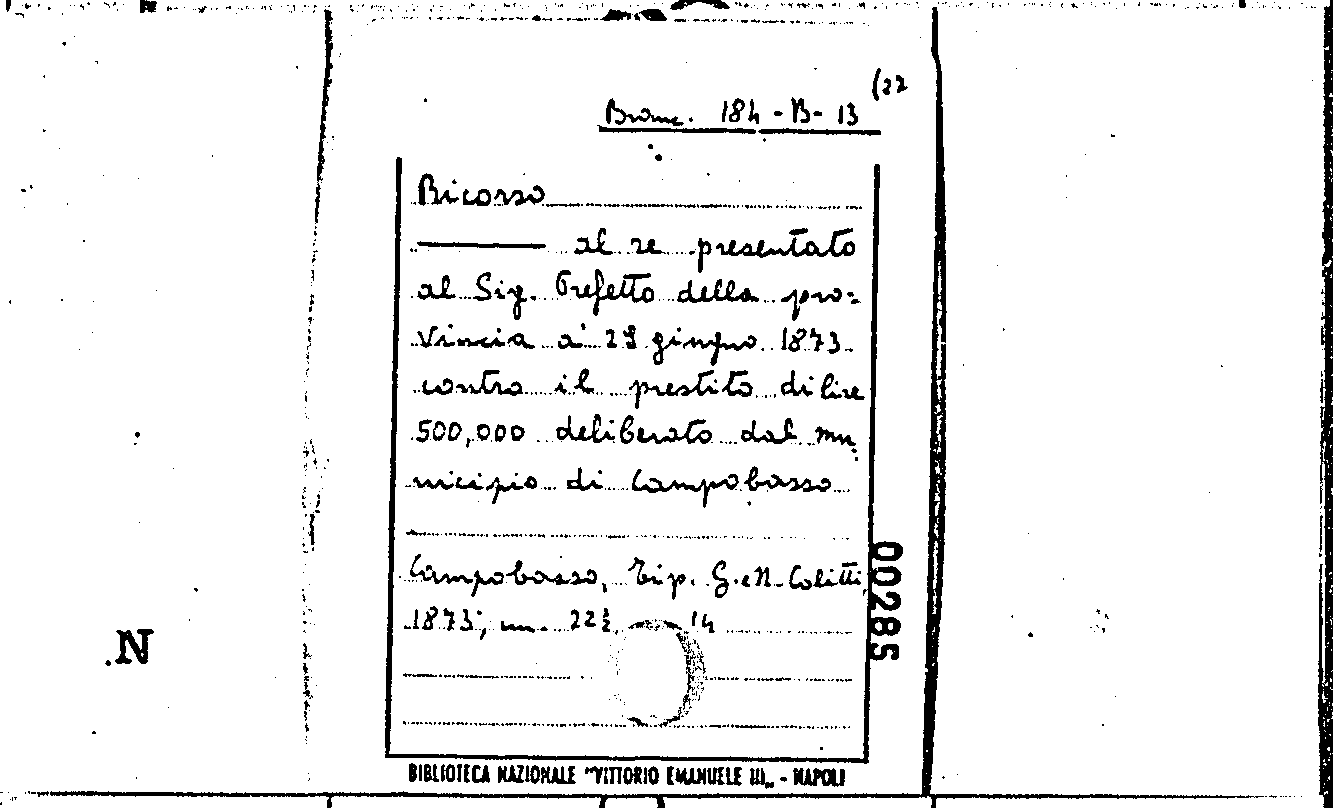 (22
Branc. 184 - B - 13
Ricorso
al re presentato
al Sig. Prefetto della pro=
vincia a' 29 giugno 1873
contro il prestito di lire
500,000 deliberato dal mu
nicipio di Campobasso
Campobasso, Tip. G. e N. Colitti,
1873; in- 22½ 14
00285
N.
BIBLIOTECA NAZIONALE "VITTORIO EMANUELE III„ - NAPOLI